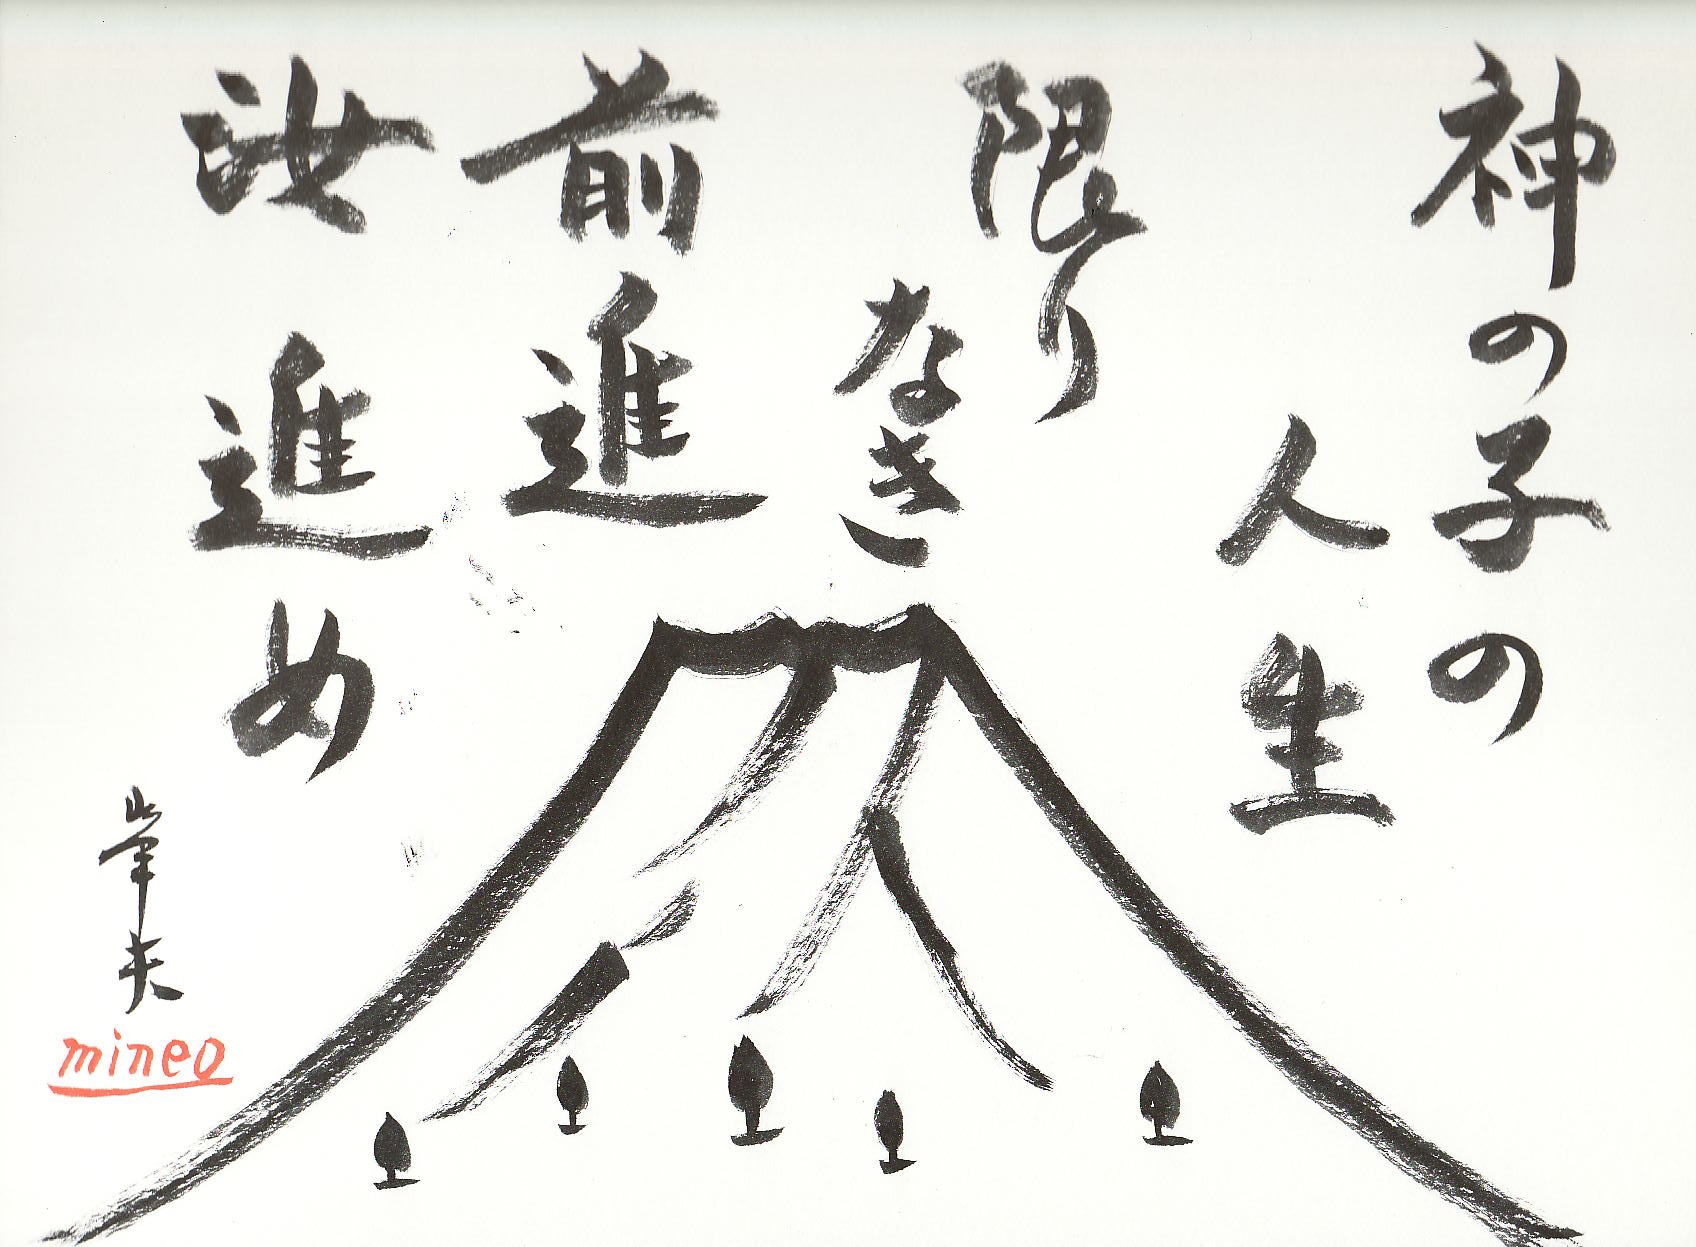 神の子の
人生
限り
なき
前進
汝
進め
峯夫
mineo